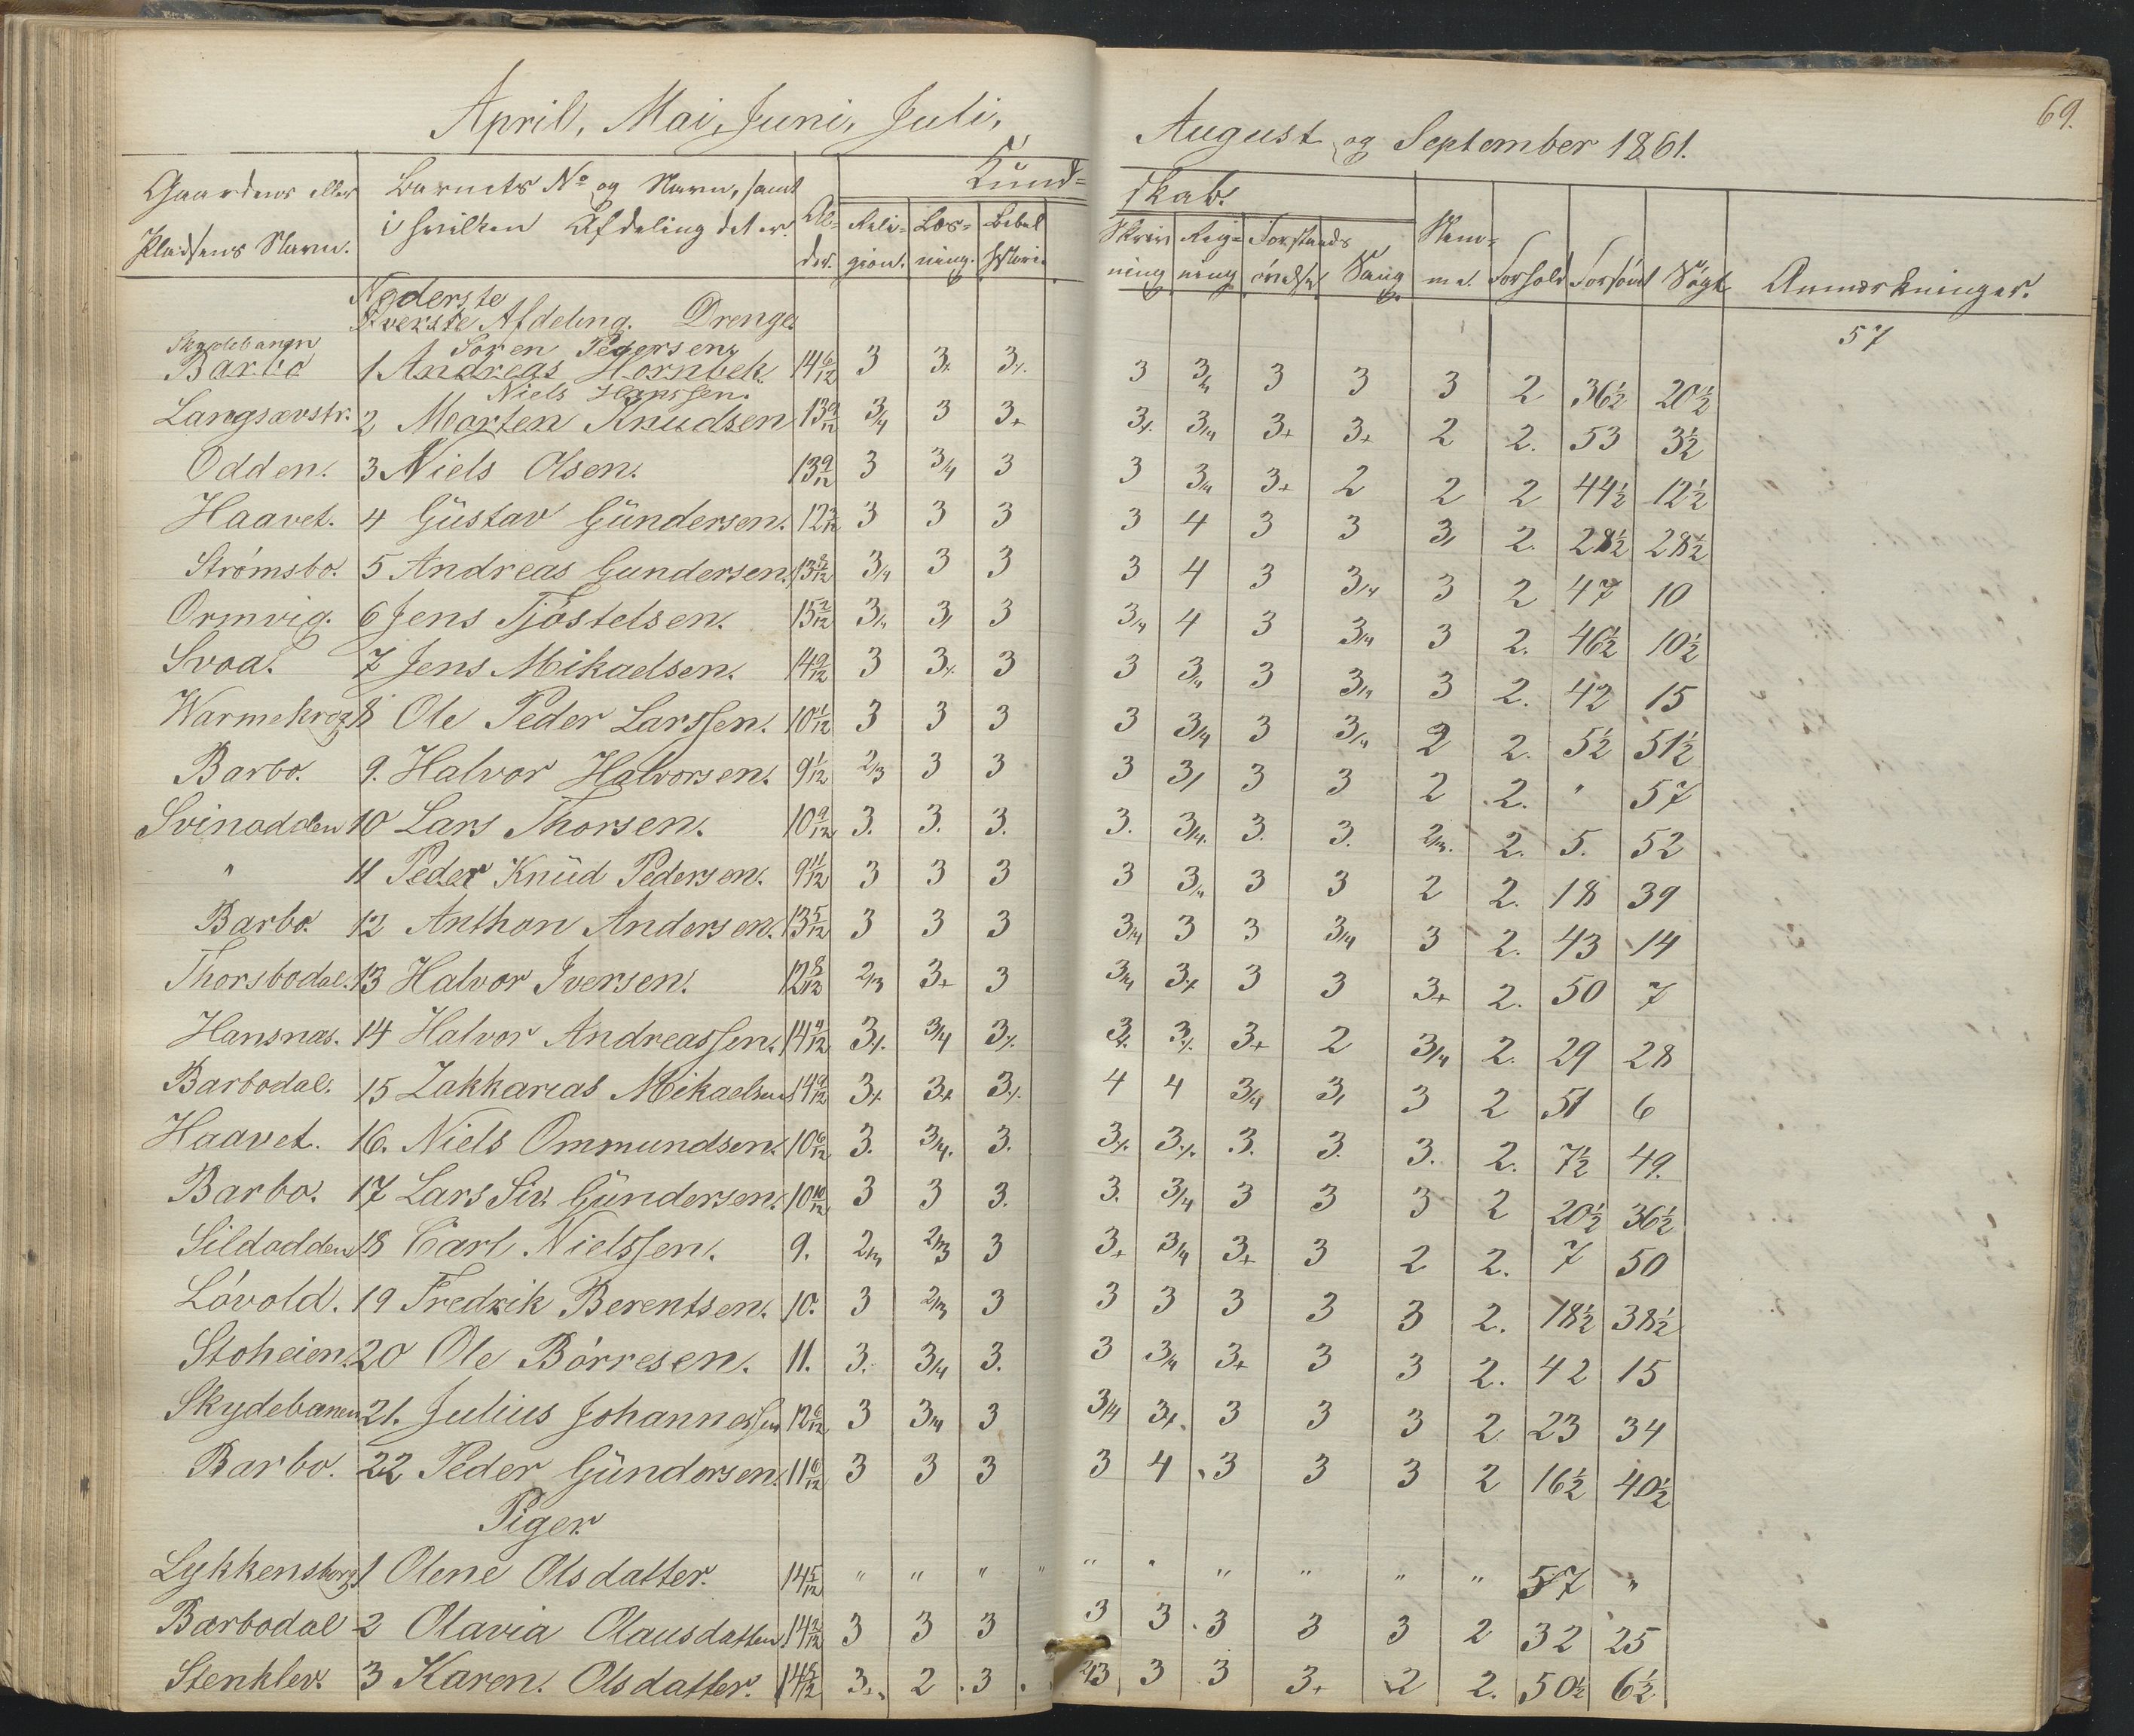 April, Mai, Juni, Juli,
August og September 1861.
69.
Gaardens eller Pladsens Navn.
Barnets No og Navn, samt i hvilken Afdeling det er.
Al-der.
Kund-
skab.
Reli-gion. Læs-ning. Bibel historie
Skriv ning Reg-ning Forstands øvelse Sang
Nem-me. Forhold Forsømt Søgt Anmærkninger.
Nederste
Øverste Afdeling. Drenge
57
Skydebanen Søren Pedersen
Barbo 1 Andreas Hornbek 14 6/12 3 3 3 3 3 3 3 3 2 36½ 20½
Niels Hanssen.
Langsævstr. 2 Morten Knudsen 13 9/12 3/4 3 3+ 3 3/4 3+ 3+ 2 2. 53 3½
Odden. 3 Niels Olsen. 13 9/12 3 3/4 3 3 3/4 3+ 2 2 2 44½ 12½
Haavet. 4 Gŭstav Gŭndersen. 12 3/12 3 3 3 3 4 3 3 3, 2. 28½ 28½
Strømsbo. 5 Andreas Gundersen. 13 8/12 3/4 3 3 3 4 3 3/4 3 2 47 10
Ormvig. 6 Jens Tjøstelsen. 15 2/12 3/4 3, 3 3/4 4 3 3/4 3 2. 46½ 10½
Svoa. 7 Jens Mikaelsen. 14 9/12 3 3 3 3 3/4 3 3/4 3 2. 42 15
Warmekrog. 8 Ole Peder Larssen. 10 1/12 3 3 3 3 3/4 3 3/4 2 2. 5½ 51½
Barbo. 9. Halvor Halvorsen. 9 1/12 2/3 3 3 3 3, 3 3 2 2. " 57
Svinodden 10 Lars Thorsen. 10 9/12 3. 3. 3. 3. 3/4. 3. 3. 2/3. 2. 5. 52
" 11 Peder Knŭd Pedersen. 9 11/12 3 3 3 3 3/4 3 3 2 2. 18 39
Barbo. 12 Anthon Andersen. 13 5/12 3 3 3 3/4 3 3 3/4 3 2. 43 14
Thorsbodal. 13 Halvor Iversen. 12 8/12 2/3 3+ 3 3/4 3+ 3 3 3+ 2. 50 7
Hansnæs. 14 Halvor Andreassen. 14 4/12 3 3/4 3 3 3 3+ 2 3/4 2. 29 28
Barbodal. 15 Zakkarias Mikaelsen 14 9/12 3+ 3+ 3 4 4 3/4 3, 3 2 51 6
Haavet. 16. Niels Ommundsen. 10 6/12 3. 3/4. 3. 3 3 3. 3. 3. 2. 7½ 49.
Barbo. 17 Lars Siv. Gŭndersen. 10 10/12 3 3 3. 3. 3/4 3 3 3 2 20½ 36½
Sildodden 18 Carl Nielssen. 9. 2/3 2/3 3 3+ 3/4 3+ 3 2 2. 7 50
Løvold. 19 Fredrik Berentsen. 10. 3 2/3 3 3 3 3 3 3 2. 18½ 38½
Stoheien. 20 Ole Børresen. 11. 3. 3/4 3. 3 3/4 3+ 3 3 2. 42 15
Skydebanen 21. Julius Johannessen 12 6/12 3 3/4 3 3/4 3+ 3 3 3 2 23 34
Barbo. 22 Peder Gŭndersen. 11 6/12 3 3 3 3 4 3 3 3 2 16½ 40½
Piger.
Lykkensborg 1 Olene Olsdatter. 14 5/12 " " " " " " " " " 57 "
Barbodal 2 Olavia Olausdatter 14 2/12 3 3 3 3 3 3 3 3 2 32 25
Stenklev. 3 Karen. Olsdatter. 14 8/12 3+ 2 3 2/3 3 3 3+ 2 2. 50½ 6½